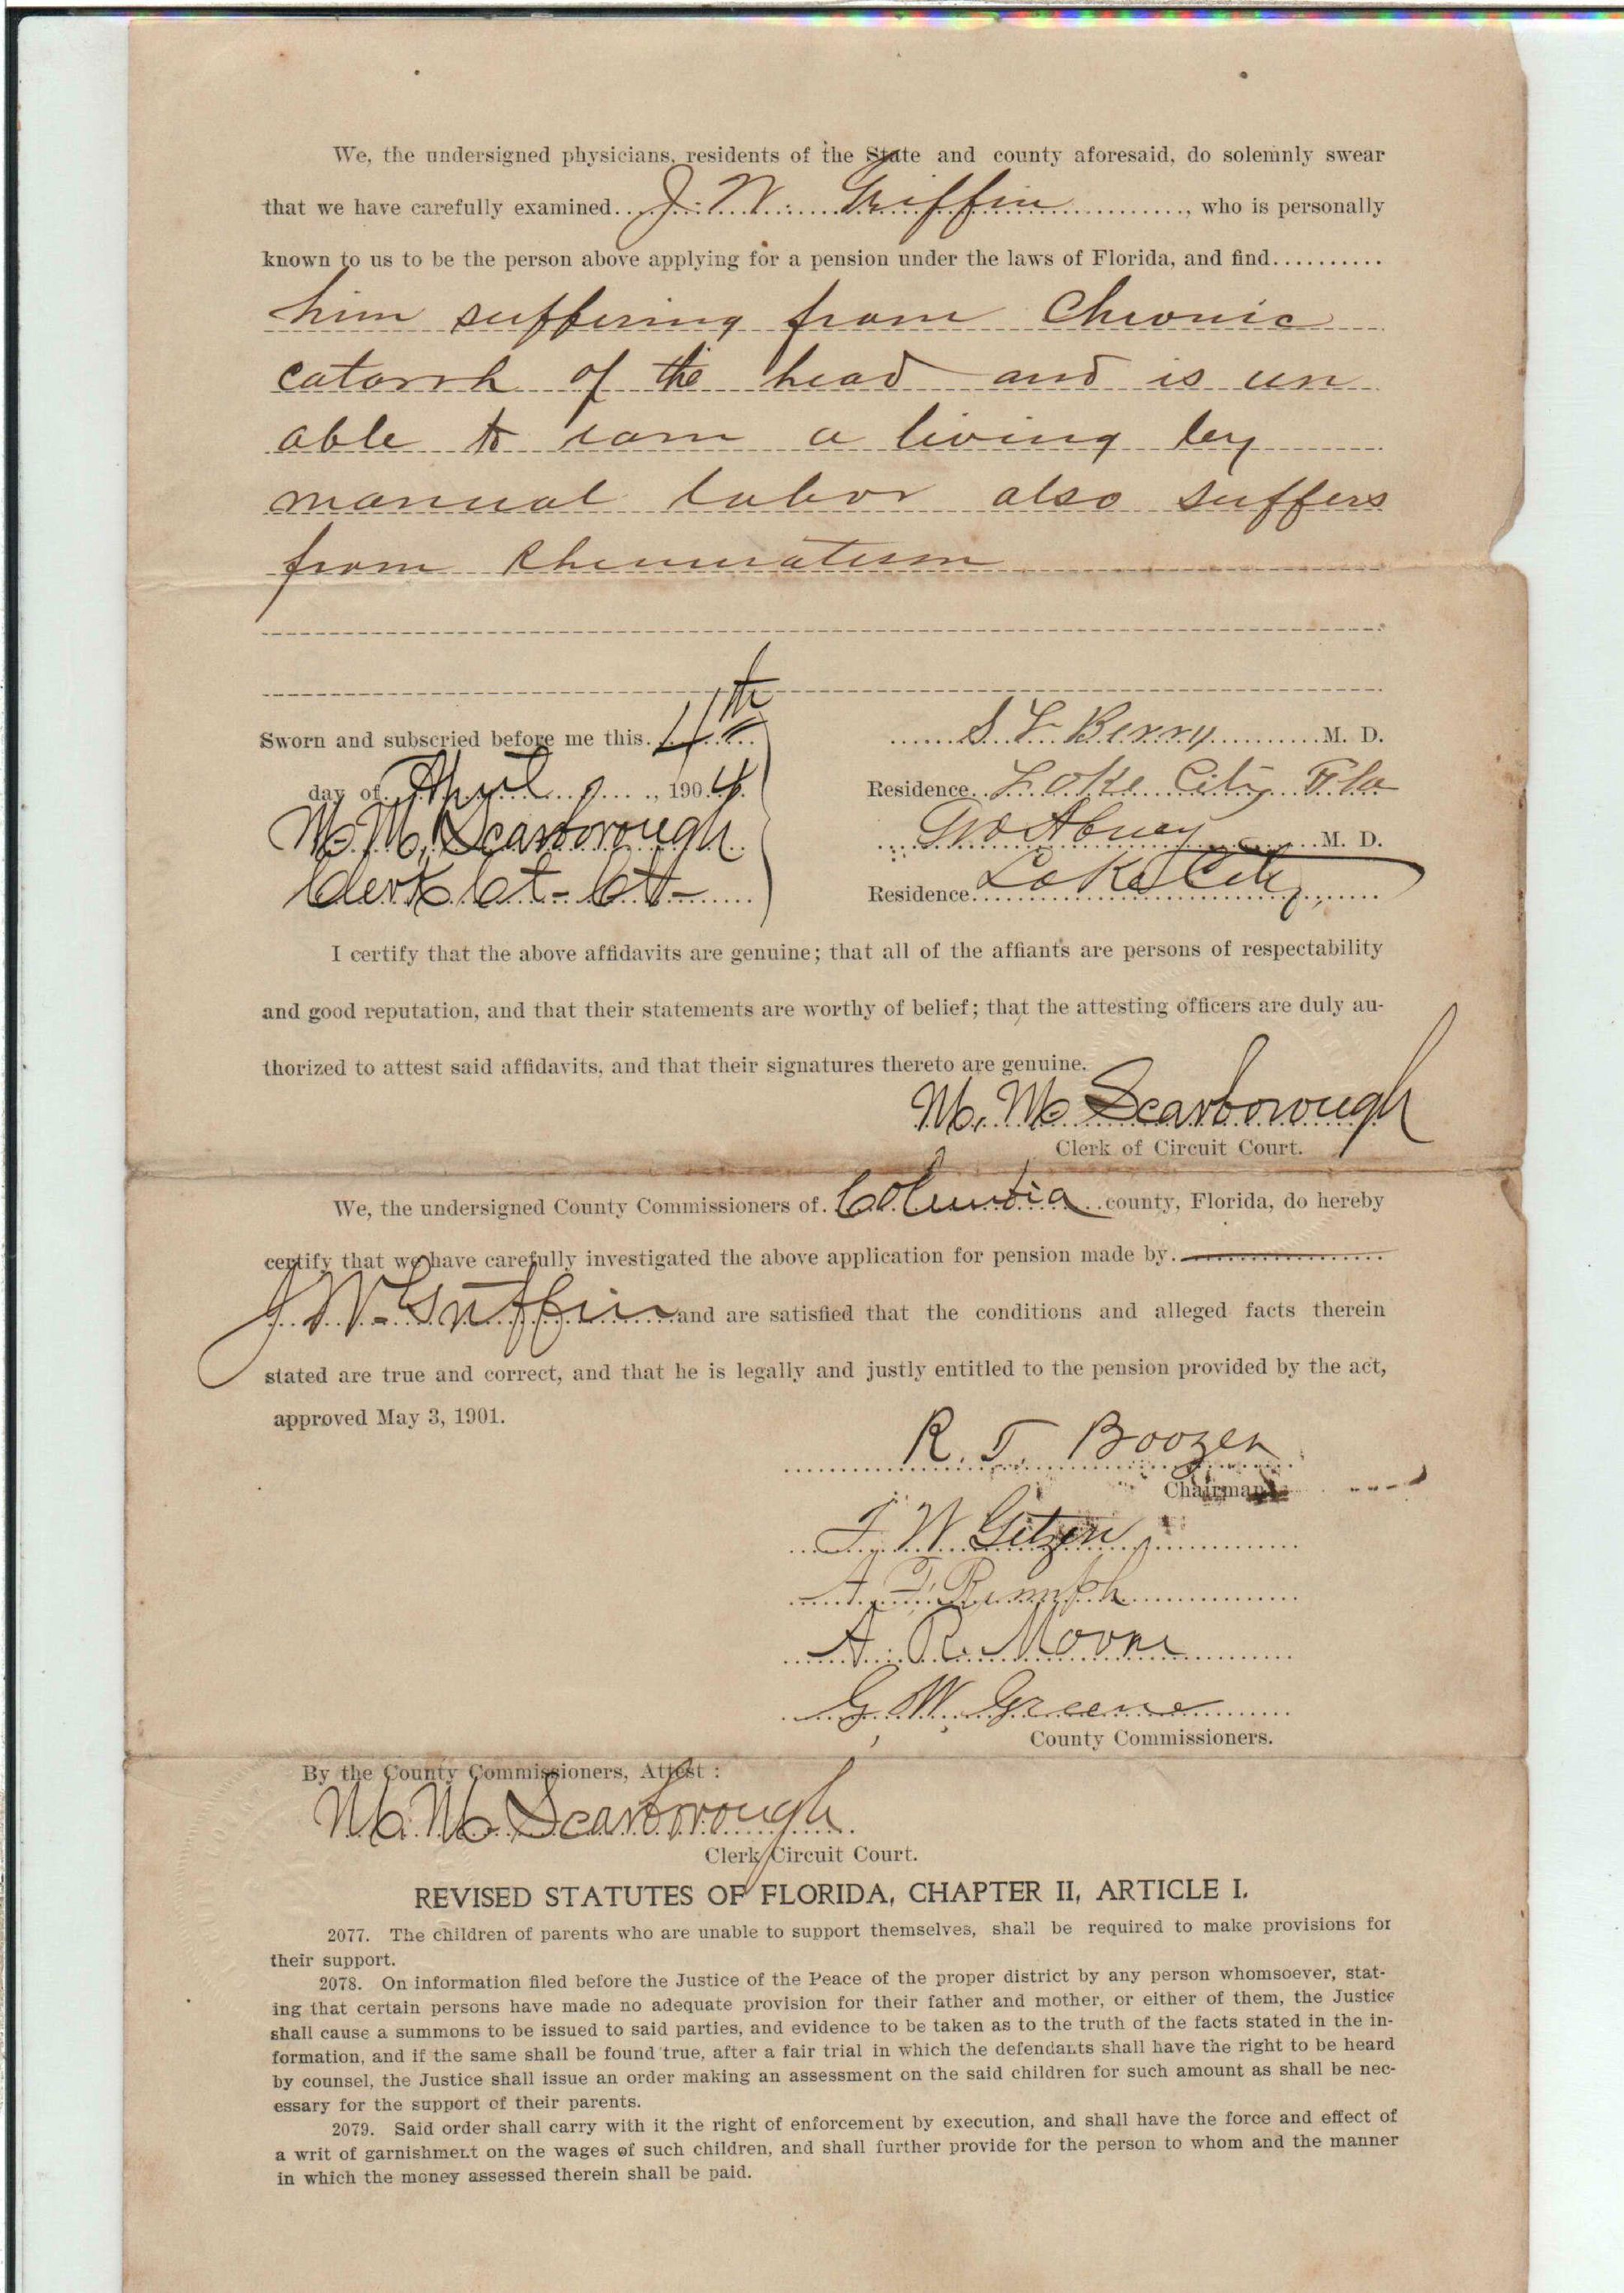 We, the undersigned physicians, residents of the State and county aforesaid, do solemnly swear
that we have carefully examined J. W. Griffin, who is personally
known to us to be the person above applying for a pension under the laws of Florida, and find
him suffering from Chronic
catarrh of the head and is un
able to earn a living by
manual labor also suffers
from Rheumatism
Sworn and subscried before me this 4th
day of April, 1904.
M. M. Scarborough
Clerk Ct. Ct.
S F Berry M. D.
Residence Lake City Fla
Geo Abney M. D.
Residence Lake City
I certify that the above affidavits are genuine; that all of the affiants are persons of respectability
and good reputation, and that their statements are worthy of belief; that the attesting officers are duly au-
thorized to attest said affidavits, and that their signatures thereto are genuine.
M. M. Scarborough
Clerk of Circuit Court.
We, the undersigned County Commissioners of Columbia county, Florida, do hereby
certify that we have carefully investigated the above application for pension made by
J. W. Griffin and are satisfied that the conditions and alleged facts therein
stated are true and correct, and that he is legally and justly entitled to the pension provided by the act,
approved May 3, 1901.
R. T. Boozer
Chairman
F. W. Getzen
A. F. Rumph
A. R. Moore
G. W. Greene
County Commissioners.
By the County Commissioners, Attest:
M. M. Scarborough
Clerk Circuit Court.
REVISED STATUTES OF FLORIDA, CHAPTER II, ARTICLE I.
2077. The children of parents who are unable to support themselves, shall be required to make provisions for
their support.
2078. On information filed before the Justice of the Peace of the proper district by any person whomsoever, stat-
ing that certain persons have made no adequate provision for their father and mother, or either of them, the Justice
shall cause a summons to be issued to said parties, and evidence to be taken as to the truth of the facts stated in the in-
formation, and if the same shall be found true, after a fair trial in which the defendants shall have the right to be heard
by counsel, the Justice shall issue an order making an assessment on the said children for such amount as shall be nec-
essary for the support of their parents.
2079. Said order shall carry with it the right of enforcement by execution, and shall have the force and effect of
a writ of garnishment on the wages of such children, and shall further provide for the person to whom and the manner
in which the money assessed therein shall be paid.